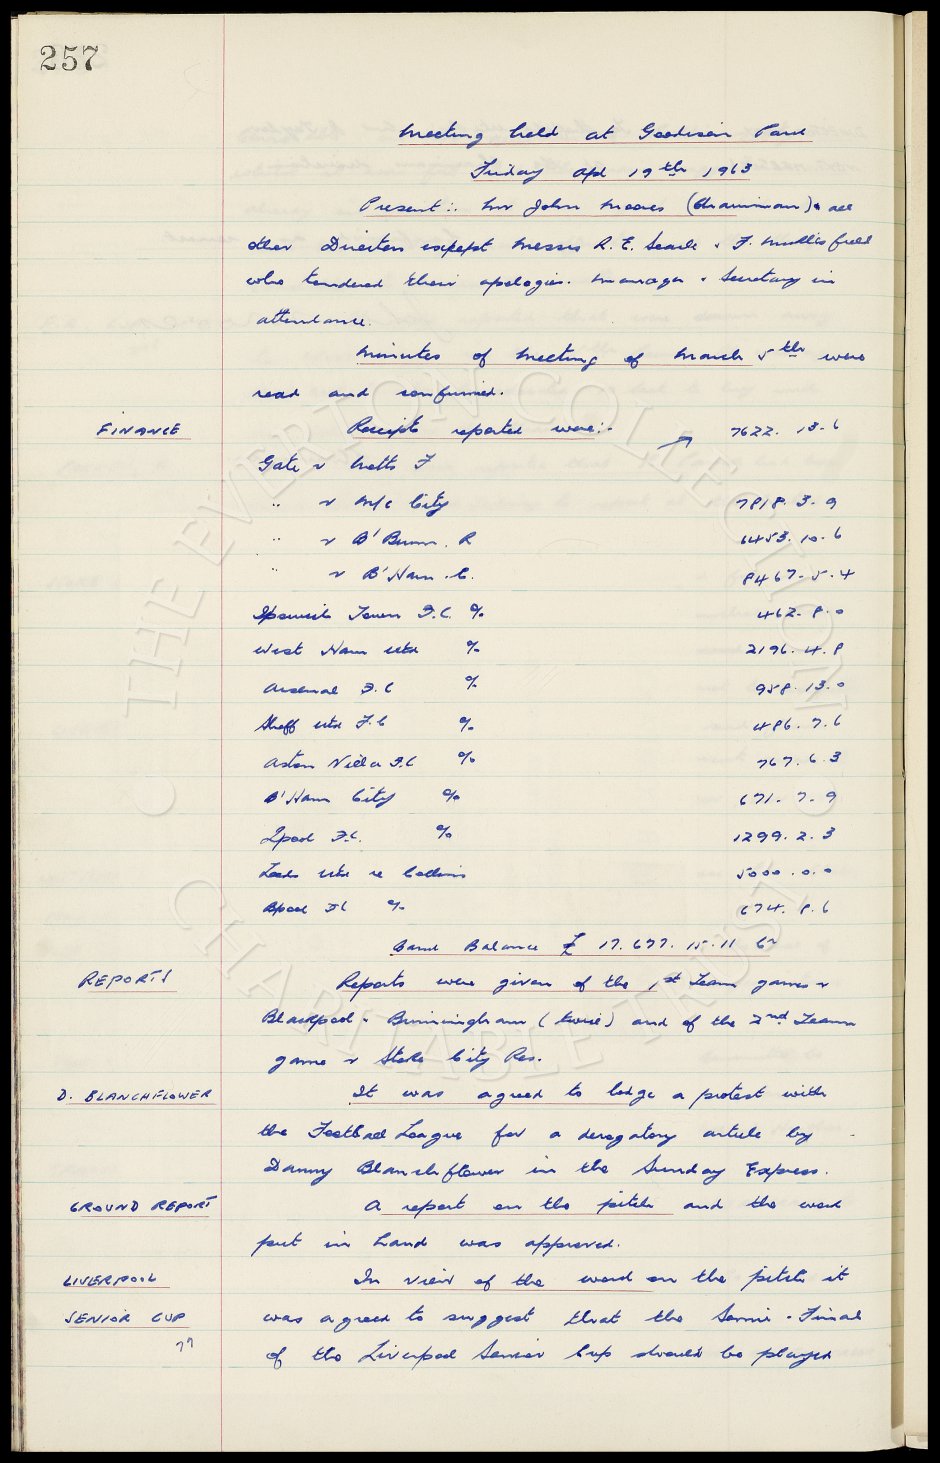 257
Meeting held at Goodison Park
Friday Apl 19th 1963
Present:- Mr John Moores (Chairman) & all
other Directors except Messrs R. E. Searle & F. Micklesfield
who tendered their apologies. Manager & Secretary in
attendance.
Minutes of Meeting of March 5th were
read and confirmed.
FINANCE Receipts reported were:-
Gate v Notts F 7622. 13. 6
" v M/C City 7818. 3. 9
" v B'Burn. R 6453. 10. 6
" v B'Ham. C. 8467. 5. 4
Ipswich Town F.C. % 462. 8. 0
West Ham Utd % 2196. 4. 8
Arsenal F.C % 958. 13. 0
Sheff Utd F.C % 486. 7. 6
Aston Villa F.C % 767. 6. 3
B'Ham City % 671. 7. 9
Lpool F.C. % 1299. 2. 3
Leeds Utd re Collins 5000. 0. 0
Bpool FC % 674. 8. 6
Bank Balance £ 17.677. 15. 11 Cr
REPORTS Reports were given of the 1st Team games v
Blackpool & Birmingham (twice) and of the 2nd Team
game v Stoke City Res.
D. BLANCHFLOWER It was agreed to lodge a protest with
the Football League for a derogatory article by
Danny Blanchflower in the Sunday Express.
GROUND REPORT A report on the pitch and the work
put in hand was approved.
LIVERPOOL In view of the work on the pitch it
SENIOR CUP was agreed to suggest that the Semi-Final
of the Liverpool Senior Cup should be played
© THE EVERTON COLLECTION
CHARITABLE TRUST